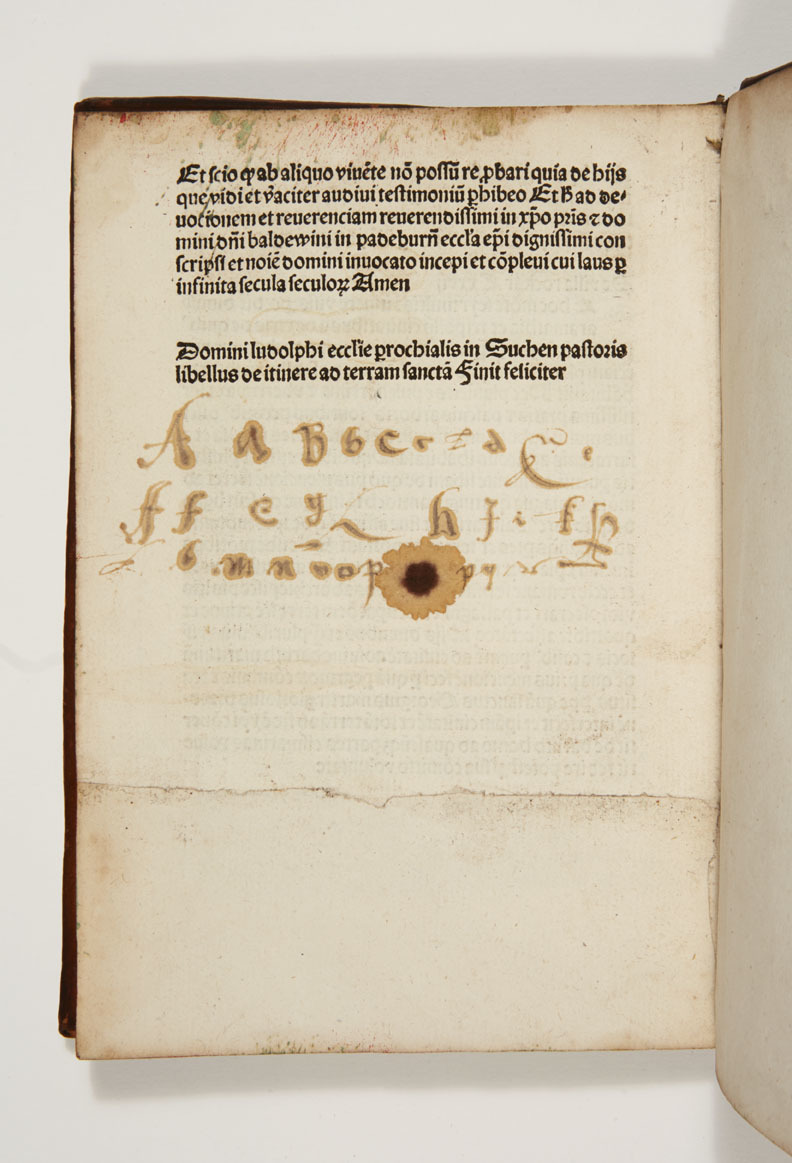 Et scio ꝙ ab aliquo viuēte nō possū reꝓbari quia de hijs
que vidi et v̄aciter audiui testimoniū ꝑhibeo Et ħ ad de⸗
uotionem et reuerenciam reuerendissimi in xp̄o pris ⁊ do
mini dn̄i baldewini in padeburn̄ eccl̄a ep̄i dignissimi con
scripsi et noīe domini inuocato incepi et cōpleui cui laus ꝑ
infinita secula seculoꝝ Amen
Domini ludolphi eccl̄ie ꝑrochialis in Suchen pastoris
libellus de itinere ad terram sanctā Finit feliciter
A a B b C c d E e
ff f G g h J i k
l m n o p p q